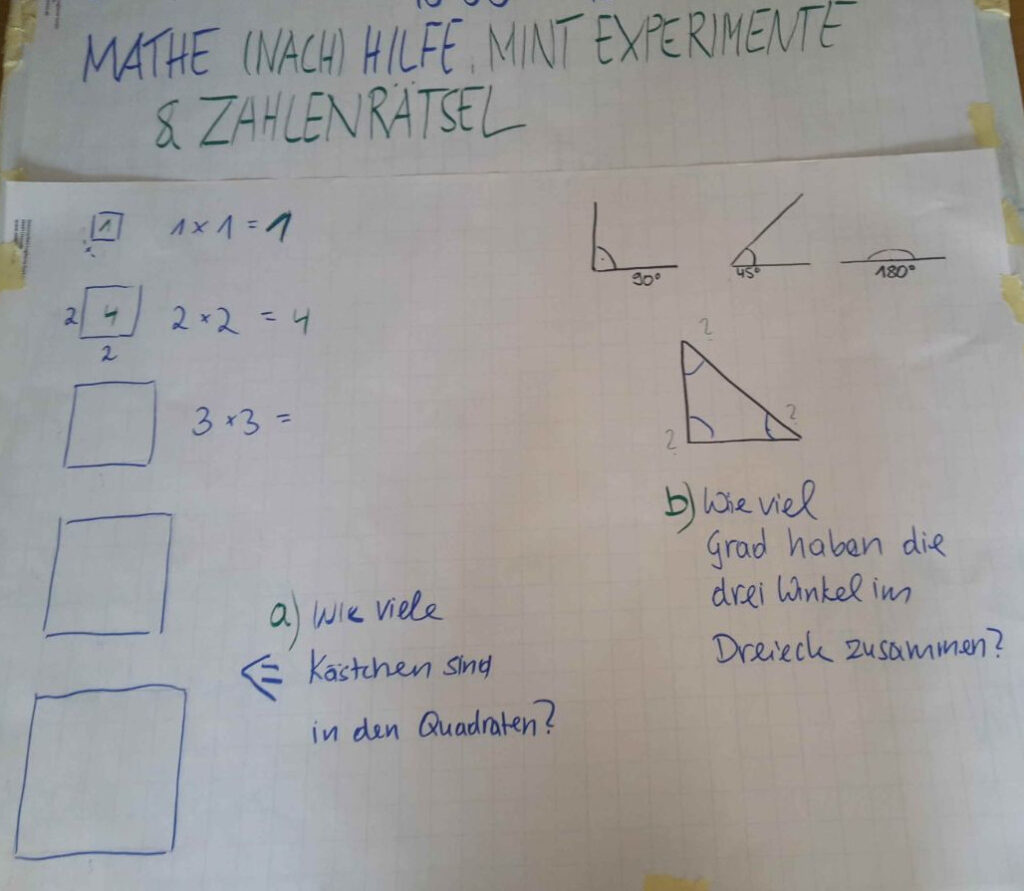 MATHE (NACH) HILFE, MINT EXPERIMENTE
& ZAHLENRÄTSEL
1 1 x 1 = 1
2 4 2 x 2 = 4
2
3 x 3 =
90°
45°
180°
?
?
?
a) Wie viele
Kästchen sind
in den Quadraten?
b) Wie viel
Grad haben die
drei Winkel im
Dreieck zusammen?